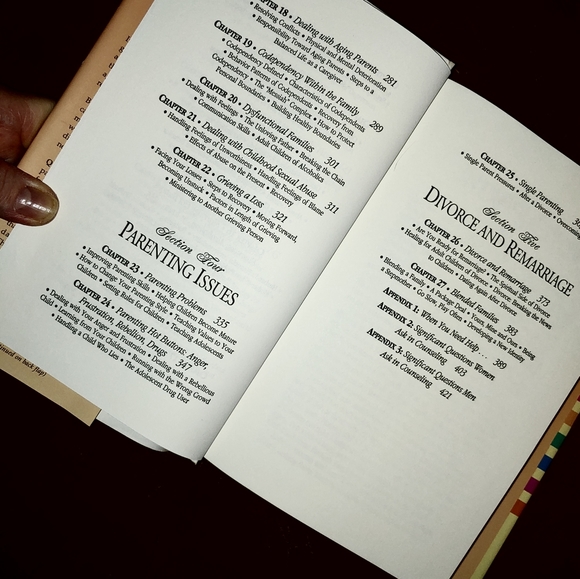 CHAPTER 18 • Dealing with Aging Parents 281
• Resolving Conflicts • Physical and Mental Deterioration
• Responsibility Toward Aging Parents • Steps to a
Balanced Life as a Caregiver
CHAPTER 19 • Codependency Within the Family 289
• Codependency Defined • Characteristics of Codependents
• Behavior Patterns of Codependents • Recovery from
Codependency • The "Messiah" Complex • How to Protect
Personal Boundaries • Building Healthy Boundaries
CHAPTER 20 • Dysfunctional Families 301
• Dealing with Feelings • The Unloving Father • Breaking the Chain
• Communication Skills • Adult Children of Alcoholics
CHAPTER 21 • Dealing with Childhood Sexual Abuse 311
• Handling Feelings of Unworthiness • Handling Feelings of Blame
• Effects of Abuse on the Present • Recovery
CHAPTER 22 • Grieving a Loss 321
• Facing Your Losses • Steps to Recovery • Moving Forward,
Becoming Unstuck • Factors in Length of Grieving
• Ministering to Another Grieving Person
Section Four
PARENTING ISSUES
CHAPTER 23 • Parenting Problems 335
• Improving Parenting Skills • Helping Children Become Mature
• How to Change Your Parenting Style • Teaching Values to Your
Children • Setting Rules for Children • Teaching Adolescents
CHAPTER 24 • Parenting Hot Buttons: Anger,
Frustration, Rebellion, Drugs 347
• Dealing with Your Anger and Frustration • Dealing with a Rebellious
Child • Learning from Your Children • Running with the Wrong Crowd
• Handling a Child Who Lies • The Adolescent Drug User
on back flap)
CHAPTER 25 • Single Parenting
• Single Parent Pressures • After a Divorce •
Section Five
DIVORCE AND REMARRIAGE
CHAPTER 26 • Divorce and Remarriage 373
• Are You Ready for Remarriage? • The Spiritual Side of Divorce
• Healing for Adult Children of Divorce • Divorce: Breaking the News
to Children • Dating Again After Divorce
CHAPTER 27 • Blended Families 383
• Blending a Family • A Package Deal • Yours, Mine and Ours • Being
a Stepmother • Go Slow, Play Often • Developing a New Identity
APPENDIX 1: When You Need Help . . . 389
APPENDIX 2: Significant Questions Women
Ask in Counseling 403
APPENDIX 3: Significant Questions Men
Ask in Counseling 421